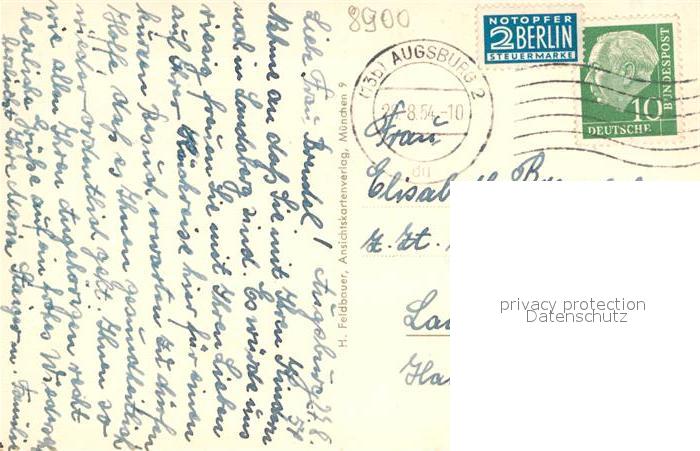 8900
NOTOPFER
2 BERLIN
STEUERMARKE
(13b) AUGSBURG 2
8.54.-10
10
DEUTSCHE
BUNDESPOST
Frau
Elisabeth
z. Zt.
H. Feldbauer, Ansichtskartenverlag, München 9
privacy protection
Datenschutz
Augsburg, 23.8.
54
Liebe Frau
Nehme an daß Sie mit Ihren Kindern
noch in Landsberg sind. Es würde uns
riesig freuen Sie mit Ihren Lieben
auf Ihrer Rückreise hier für einen
kurzen Besuch erwarten zu dürfen
Hoffe, daß es Ihnen gesundheitlich
wieder ordentlich geht. Ihnen so
wie allen Ihren Angehörigen recht
herzliche Grüße auf ein frohes Wiedersehen
Ihre Maria u. Familie